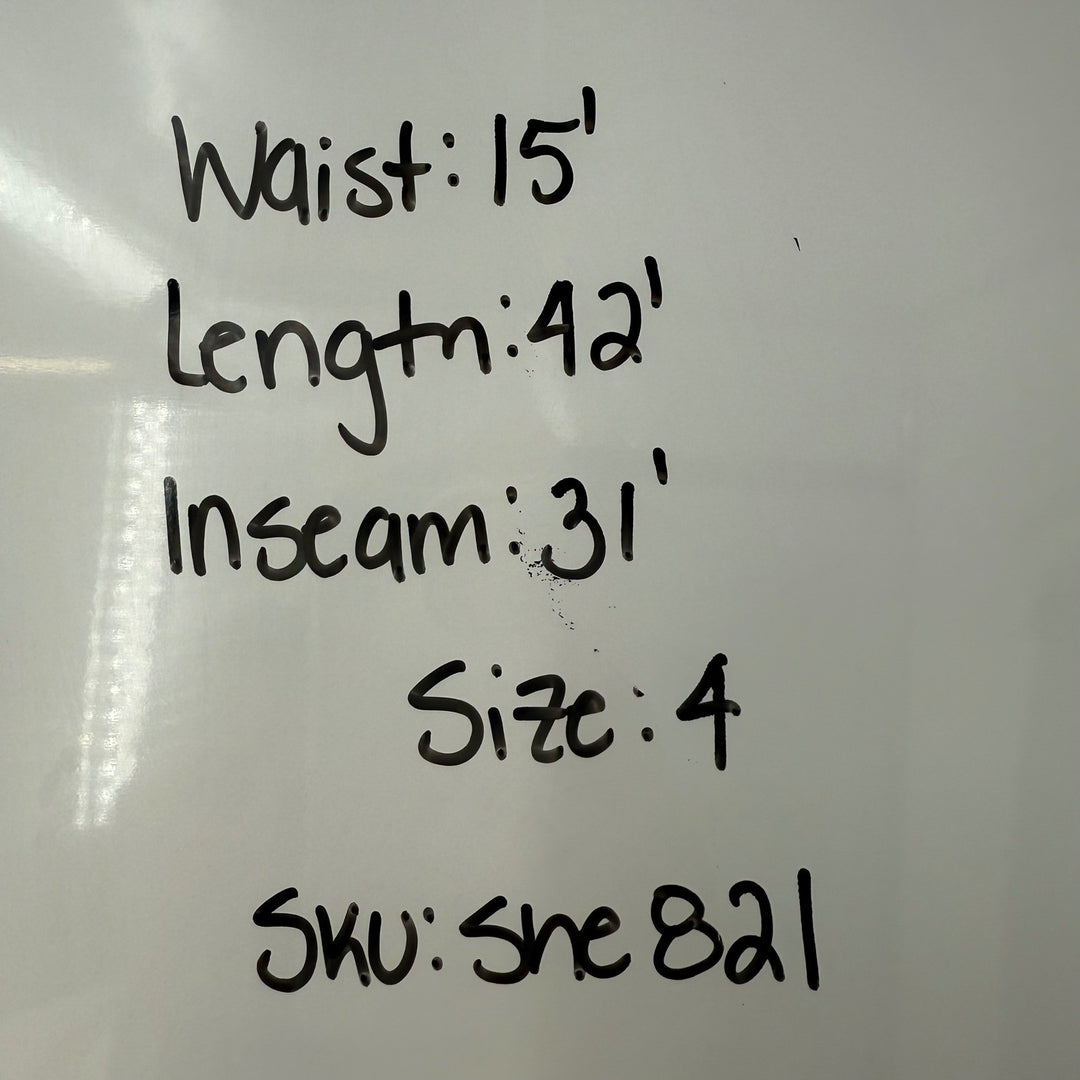 Waist: 15'
Length: 42'
Inseam: 31'
Size: 4
Sku: She 821